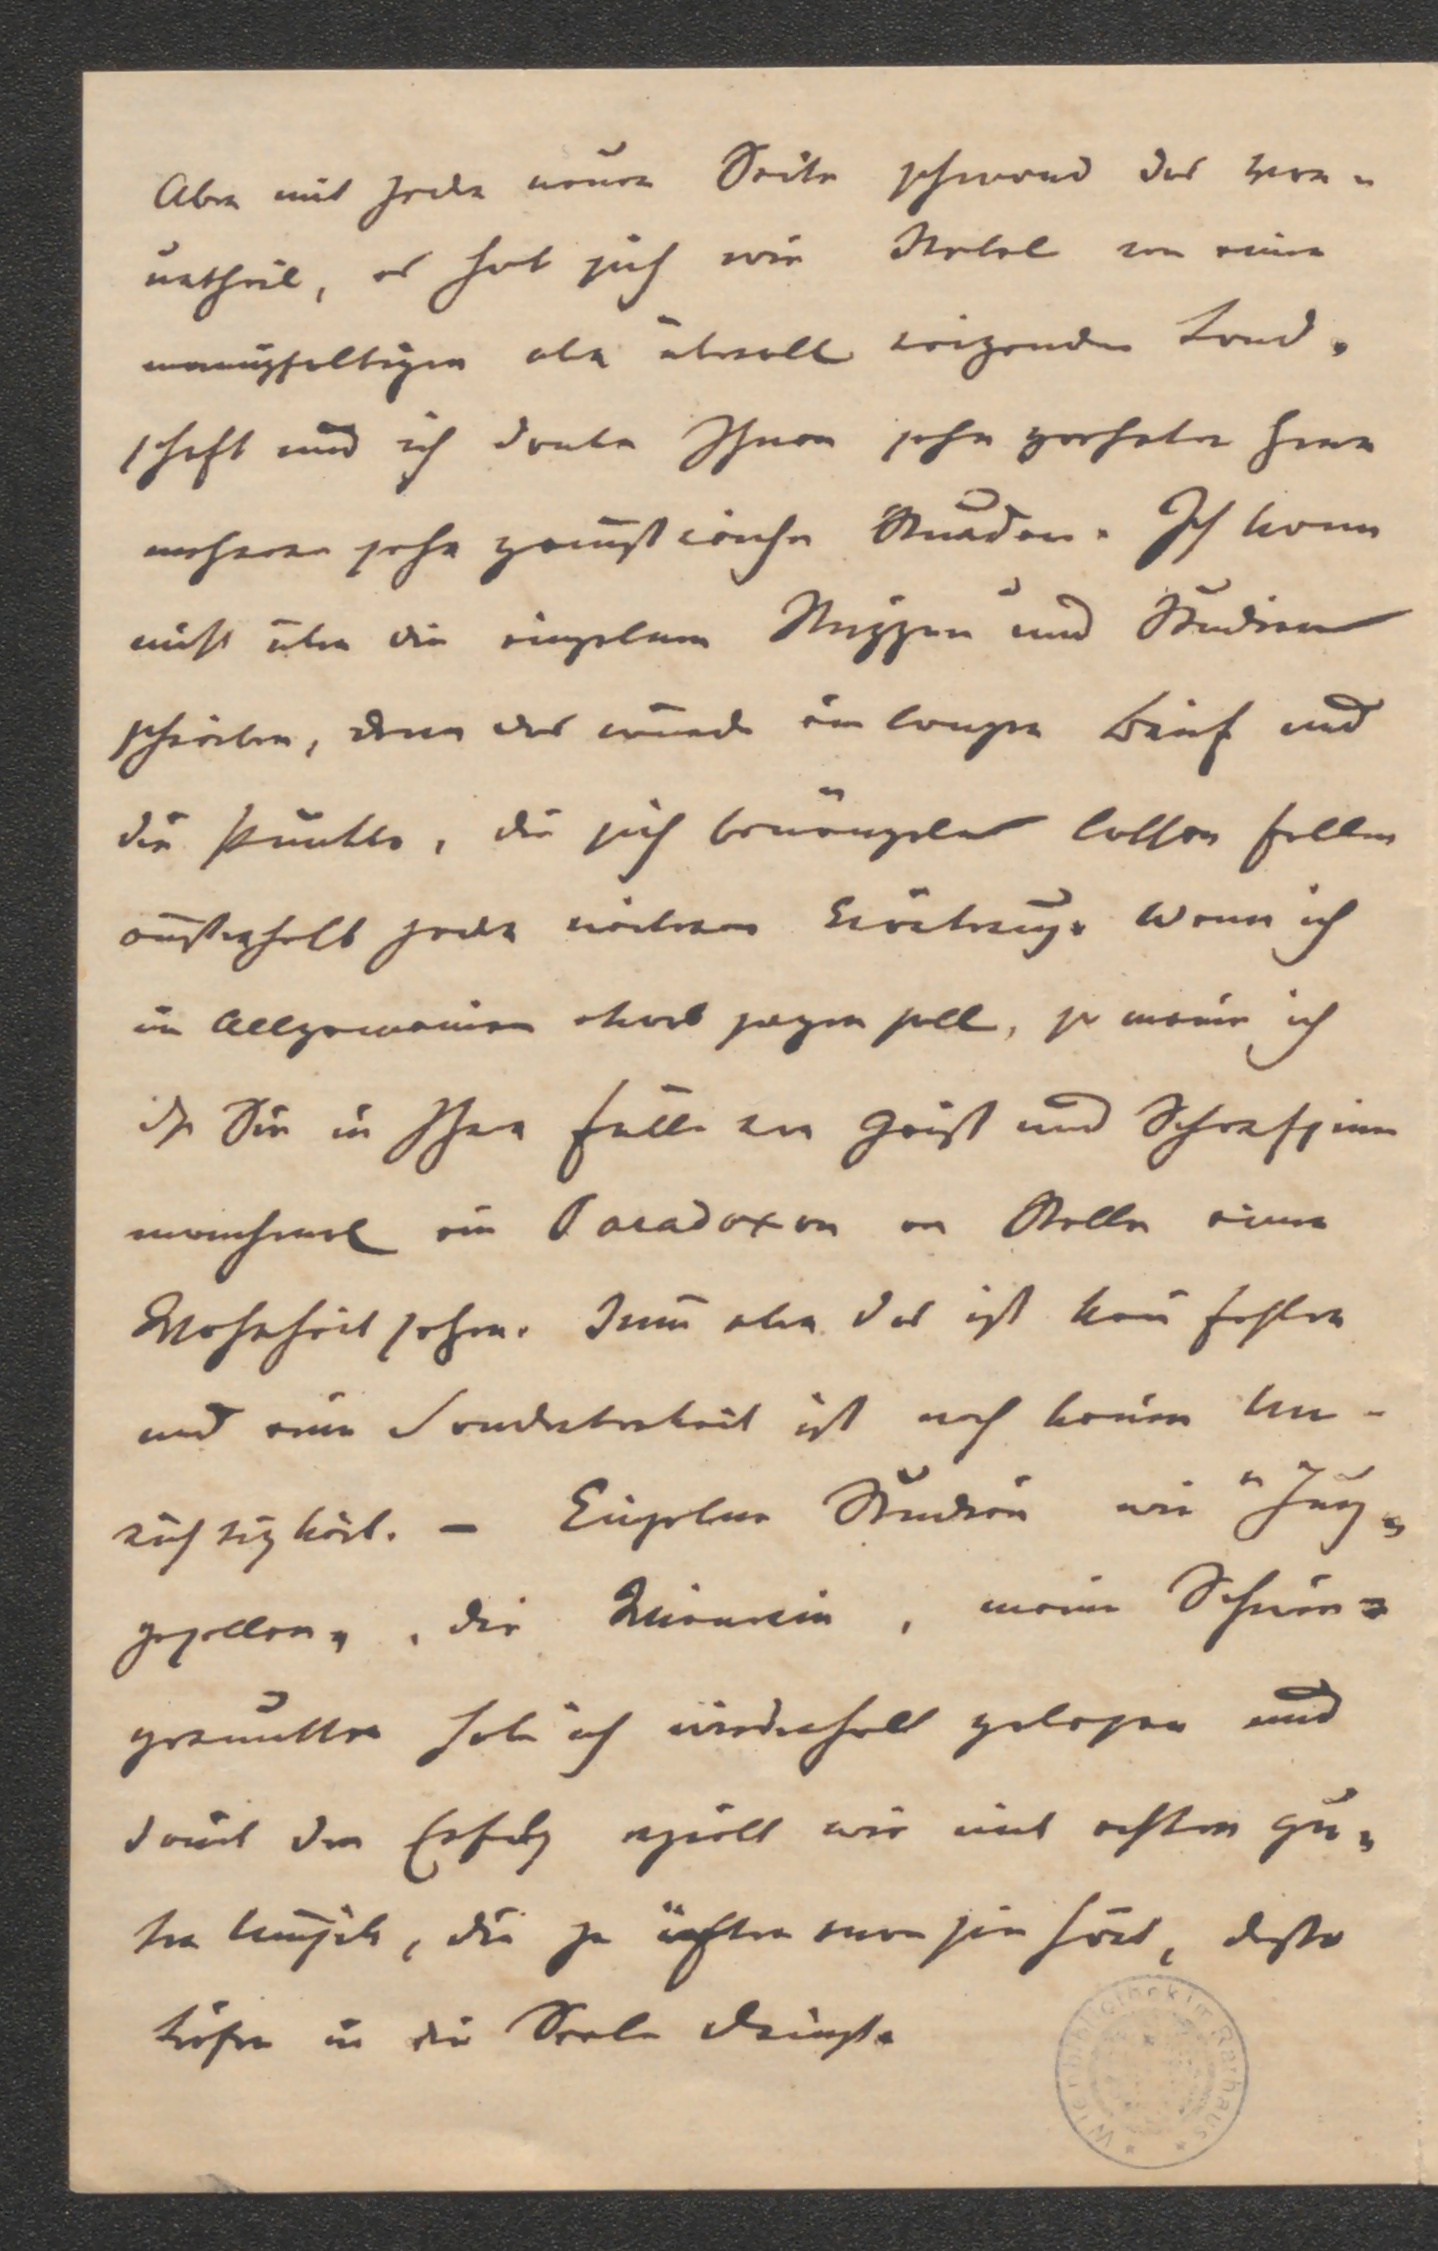 Aber mit jeder neuen Seite schwand das Vor-
urtheil, es hob sich wie Nebel von einer
mannigfaltigen aber überall reizenden Land-
schaft und ich danke Ihnen sehr geehrter Herr
mehrere sehr genußreiche Stunden. Ich kann
nicht über die einzelnen Skizzen und Studien
schreiben, denn das würde ein langer Brief und
die Punkte, die sich bemängeln lassen fallen
außerhalb jeder weiteren Erörterung. Wenn ich
im Allgemeinen etwas sagen soll, so meine ich
dß Sie in Ihrer Fülle von Geist und Scharfsinn
manchmal ein Paradoxon an Stelle einer
Wahrheit sehen. Immer aber das ist kein Fehler
und eine Sonderbarkeit ist noch keine Un-
richtigkeit. – Einzelne Studien wie "Jung-
gesellen", die Wienerin, meine Schwie-
germutter habe ich wiederholt gelesen und
damit den Erfolg erzielt wie mit echter gu-
ter Musik, die je öfter man sie hört, desto
tiefer in die Seele dringt.
Wienbibliothek im Rathaus